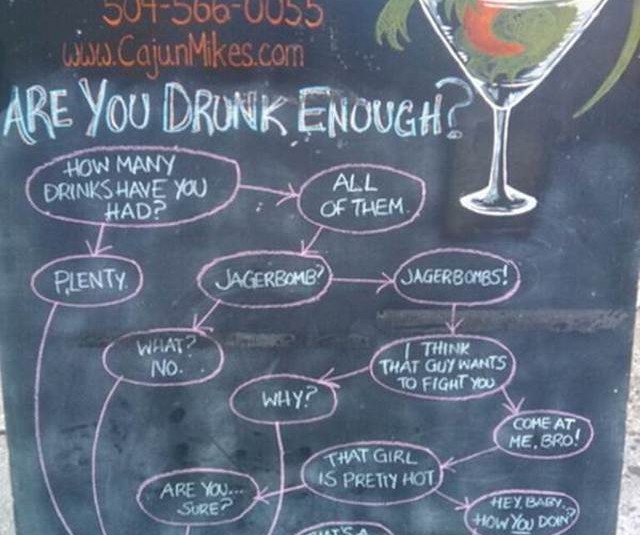 504-566-0055
www.CajunMikes.com
ARE YOU DRUNK ENOUGH?
HOW MANY
DRINKS HAVE YOU
HAD?
ALL
OF THEM.
PLENTY.
JAGERBOMB?
JAGERBOMBS!
WHAT?
NO.
I THINK
THAT GUY WANTS
TO FIGHT YOU
WHY?
COME AT
ME, BRO!
THAT GIRL
IS PRETTY HOT
ARE YOU...
SURE?
HEY, BABY.
HOW YOU DOIN?
THAT'S A